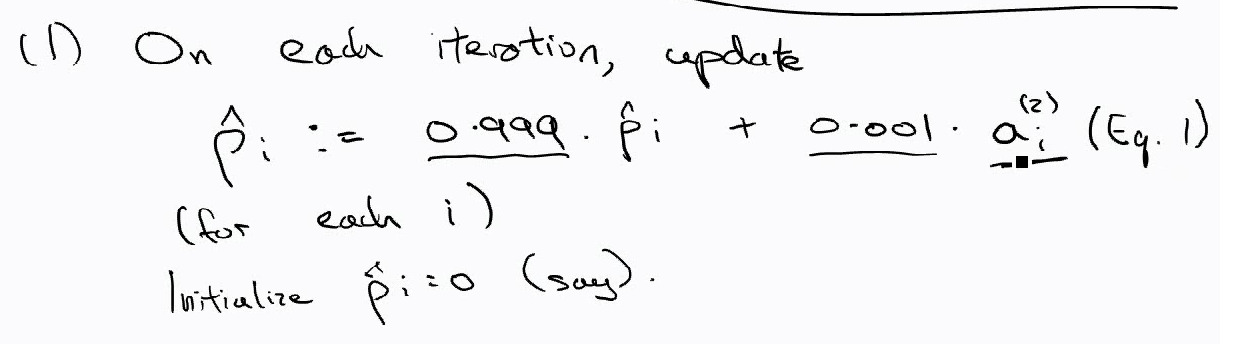 (1) On each iteration, update
ρ̂ᵢ := 0.999 · ρ̂ᵢ + 0.001 · aᵢ⁽²⁾ (Eq. 1)
(for each i)
Initialize ρ̂ᵢ = 0 (say).